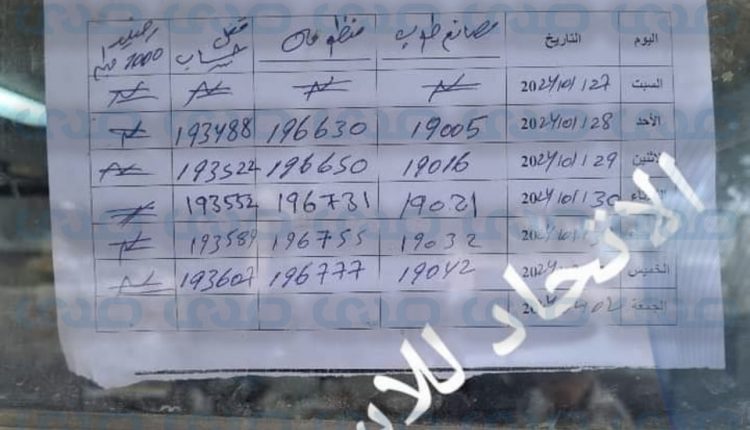 اليوم التاريخ مصانع طوب منظومات فتح حساب
السبت 2024/01/27
الأحد 2024/01/28 19005 196630 193488
الاثنين 2024/01/29 19016 196650 193522
2024/01/30 19021 196731 193552
19032 196755 193589
الخميس 19042 196777 193607
الجمعة
الاتحاد للاس